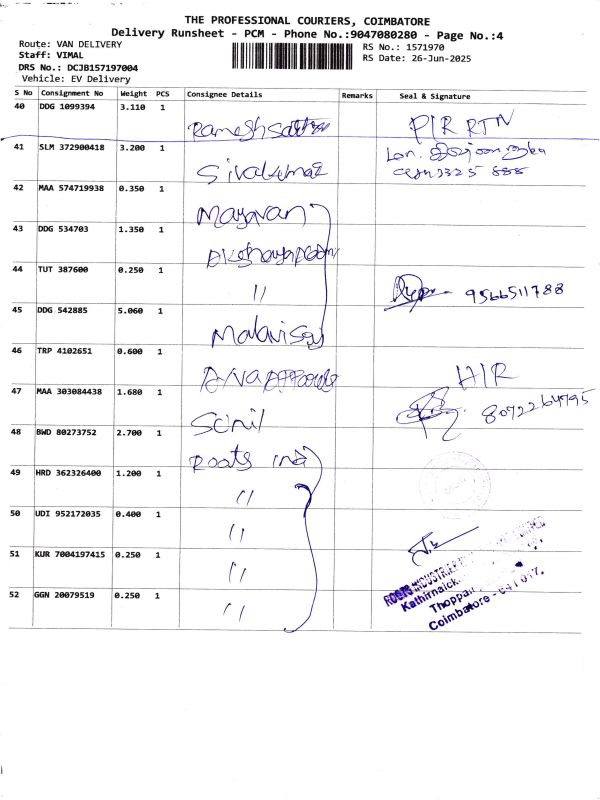 THE PROFESSIONAL COURIERS, COIMBATORE
Delivery Runsheet - PCM - Phone No.:9047080280 - Page No.:4
Route: VAN DELIVERY
Staff: VIMAL
DRS No.: DCJB157197004
Vehicle: EV Delivery
RS No.: 1571970
RS Date: 26-Jun-2025
S No Consignment No Weight PCS Consignee Details Remarks Seal & Signature
40 DDG 1099394 3.110 1 P/R RTN
41 SLM 372900418 3.200 1 Sivakumar
42 MAA 574719938 0.350 1 Mayavan
43 DDG 534703 1.350 1
44 TUT 387600 0.250 1 11 9566511788
45 DDG 542885 5.060 1
46 TRP 4102651 0.600 1 H/R
47 MAA 303084438 1.680 1 8072264795
48 BWD 80273752 2.700 1 Roots ind
49 HRD 362326400 1.200 1 11
50 UDI 952172035 0.400 1 11
51 KUR 7004197415 0.250 1 11
52 GGN 20079519 0.250 1 11
ROOTS INDUSTRIES
Coimbatore - 641 017.